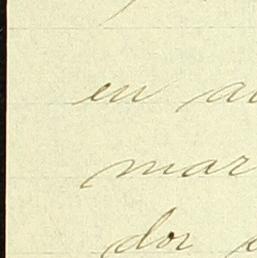 en
mar
dor